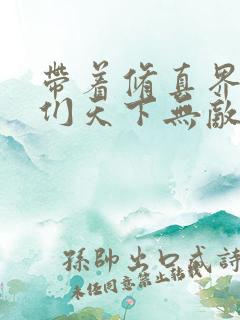 帶着修真界
们天下無敵
孫帥出口成詩
未经同意禁止转载